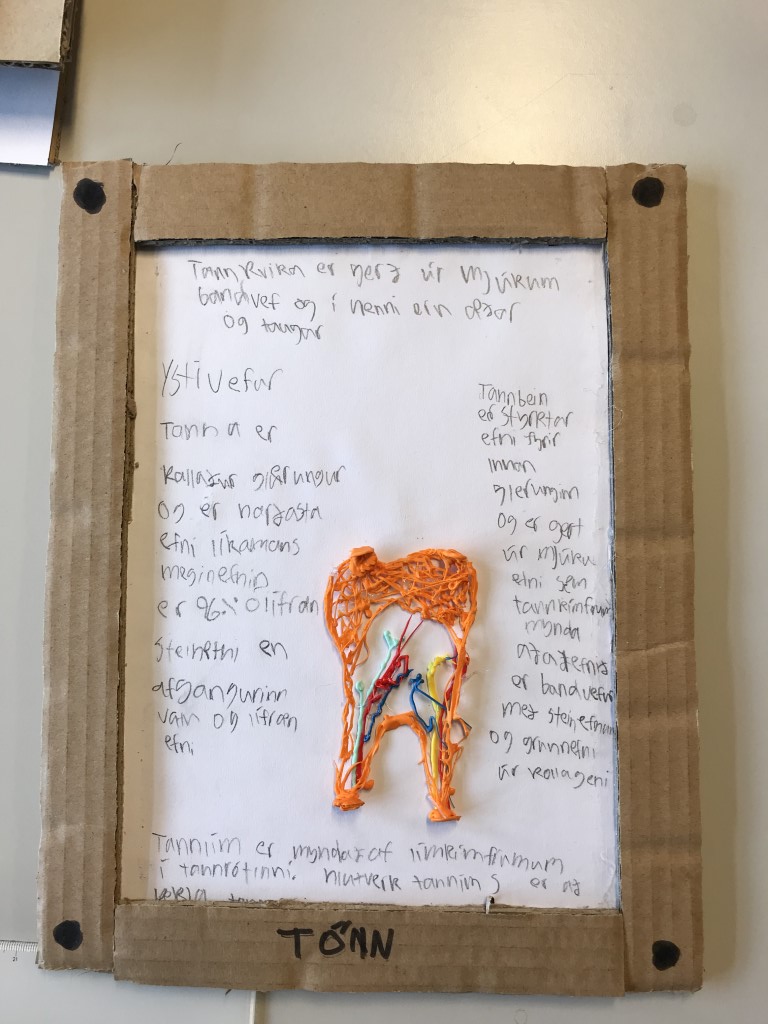 Tannkvika er gerð úr mjúkum
bandvef og í henni eru æðar
og taugar
Ystivefur
Tanna er
kallaður glerungur
og er harðasta
efni líkamans
meginefnið
er 96% ólífræn
steinefni en
afgangurinn
vatn og lífræn
efni
Tannbein
er styrktar
efni fyrir
innan
glerungin
og er gert
úr mjúku
efni sem
tannkímfrum
mynda
aðalefnið
er bandvefur
með steinefnum
og grunnefni
úr kollageni
Tannlím er myndað af límkímfrumum
í tannrótinni. hlutverk tannlíms er að
TÖNN